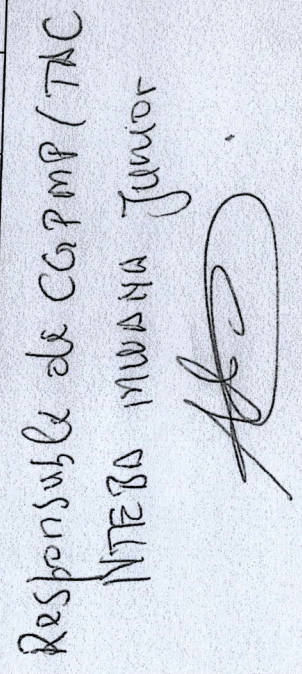 Responsable de CGPMP/TAC
NTEBA MWANA Junior